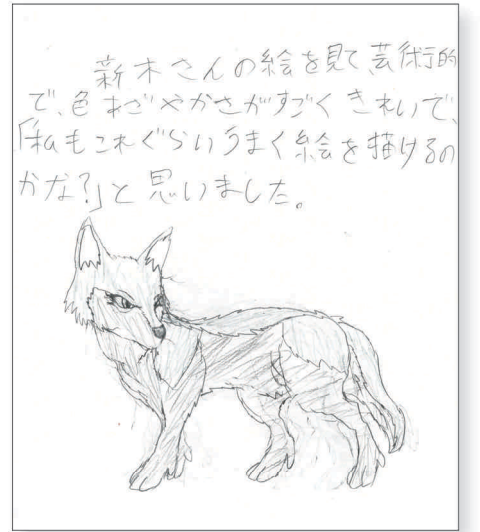 新木さんの絵を見て、芸術的
で、色あざやかさがすごくきれいで、
「私もこれぐらいうまく絵を描けるの
かな?」と思いました。